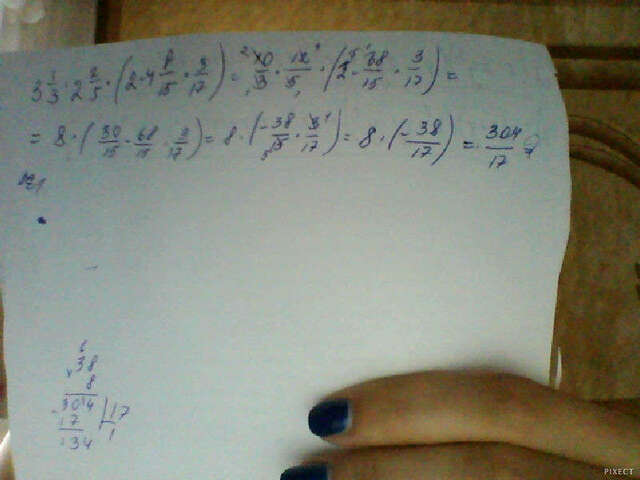 3 1/3 · 2 2/5 · (2 - 4 8/15 · 3/17) = 10/3 · 12/5 · (2 - 68/15 · 3/17) =
= 8 · (30/15 - 68/15 · 3/17) = 8 · (-38/15 · 3/17) = 8 · (-38/17) = 304/17
38
8
304 | 17
17 1
134
PIXECT